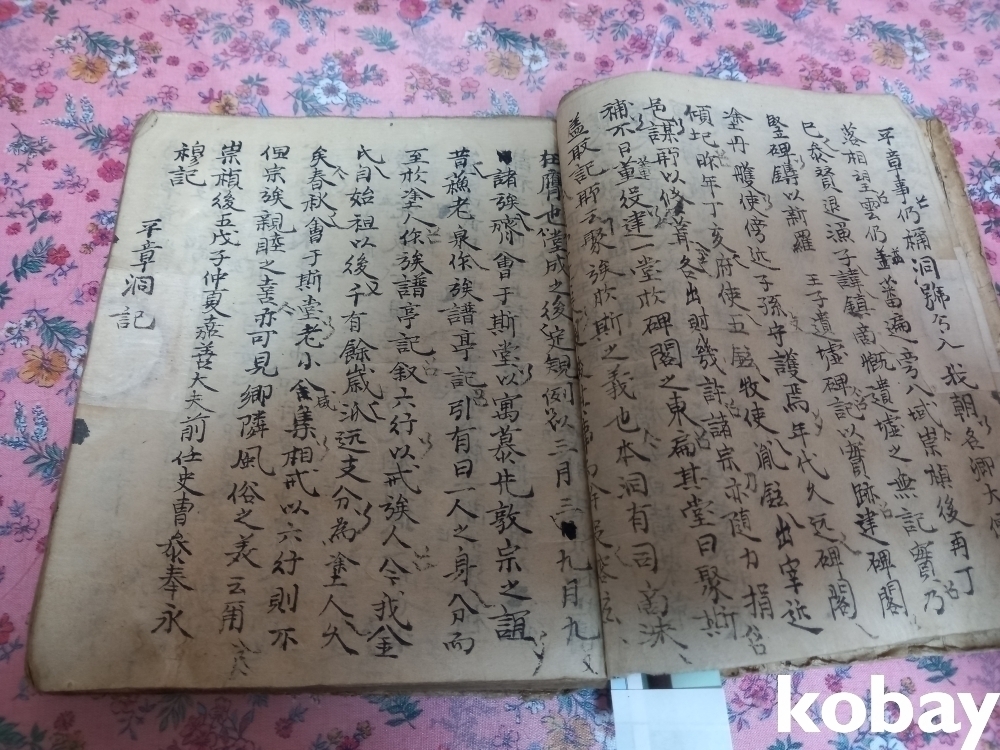 平章事仍稱洞號矣入 我朝各卿大
落相望雲仍蕃遍旁八域崇禎後再丁
巳泰贇退漁子諱鎮商慨遺墟之無記實乃
竪碑鐫以新羅 王子遺墟碑記以實跡建碑閣
塗丹雘使傍近子孫守護焉年代久远碑閣
傾圮昨年丁亥府使五鉉牧使胤鉉出宰近
邑謀所以修葺各出財幾許諸宗亦随力捐
補不日葺役建一堂於碑閣之東扁其堂曰聚斯
盖取記師子聚族於斯之義也本洞有司
也堂成之後定規例以三月三 九月九
諸族齋會于斯堂以寓慕先敦宗之誼
昔蘓老泉作族譜亭記引有曰一人之身分而
至於塗人作族譜亭記叙六行以戒族人今我金
氏自始祖以後千有餘歲派远支分為塗人久
矣春秋會于斯堂老小咸集相戒以六行則不
但宗族親睦之喜亦可見鄉隣風俗之美云爾
崇禎後五戊子仲夏 嘉善大夫前仕史曹泰奉永
穆記
平章洞記
kobay